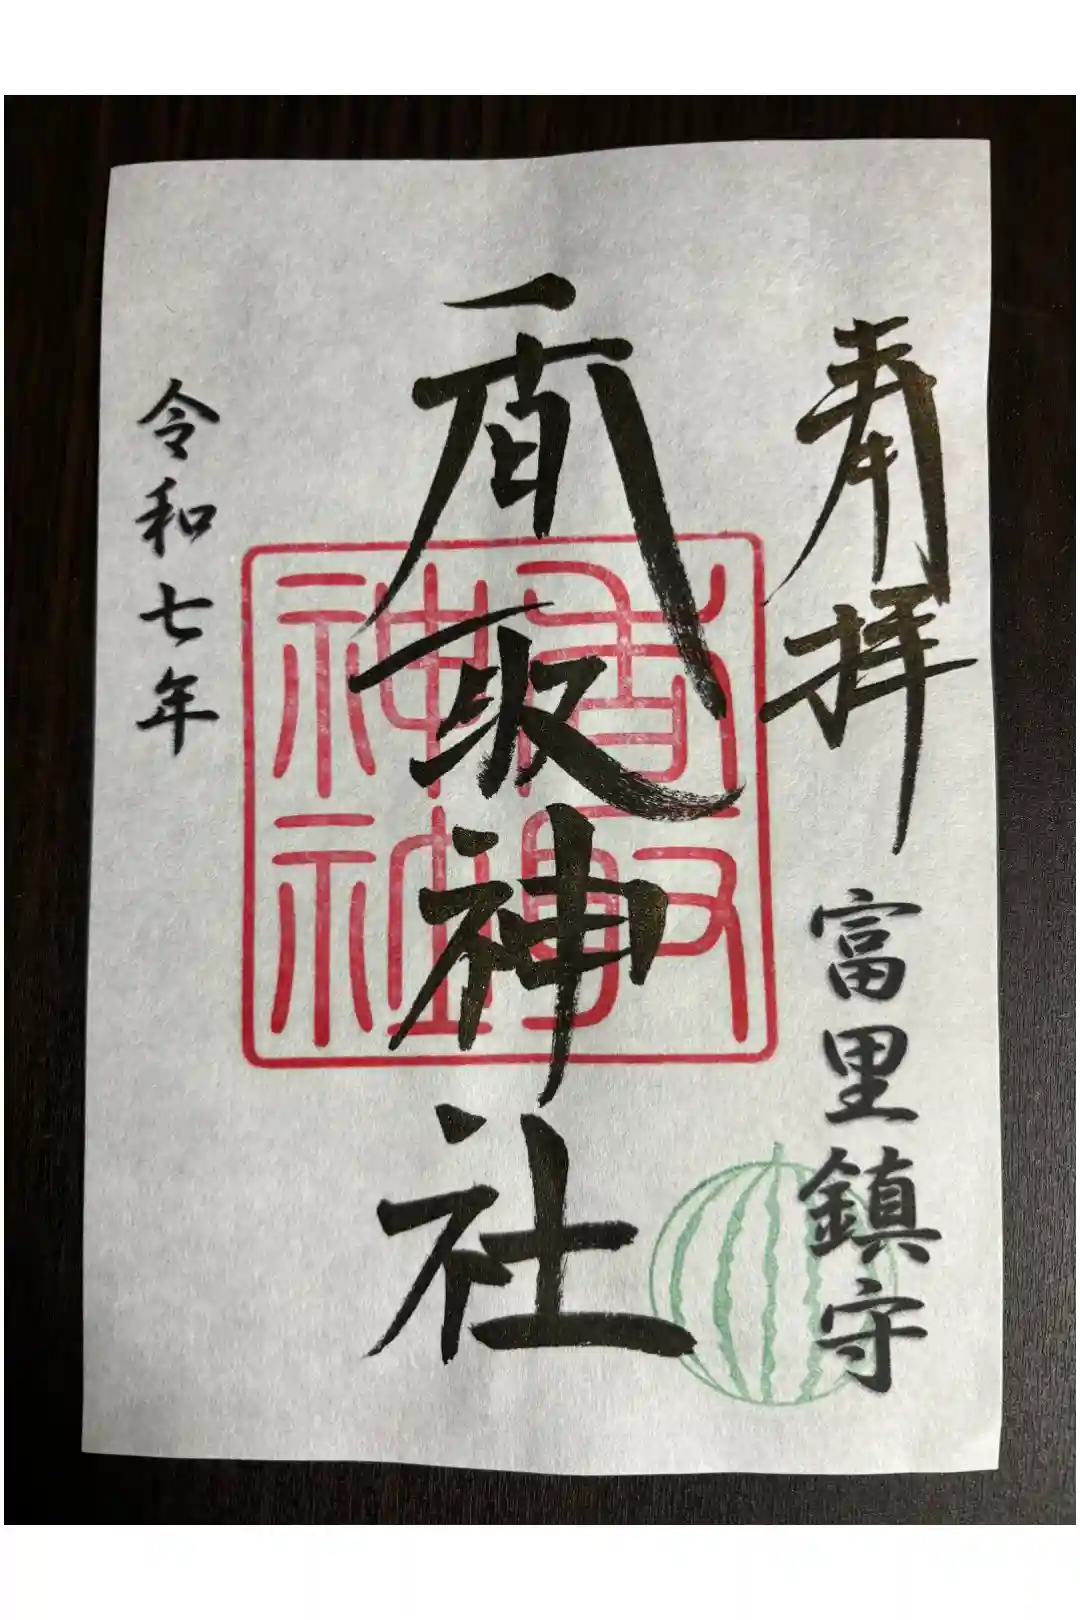 奉拝
富里鎮守
香取神社
香取
神社
令和七年